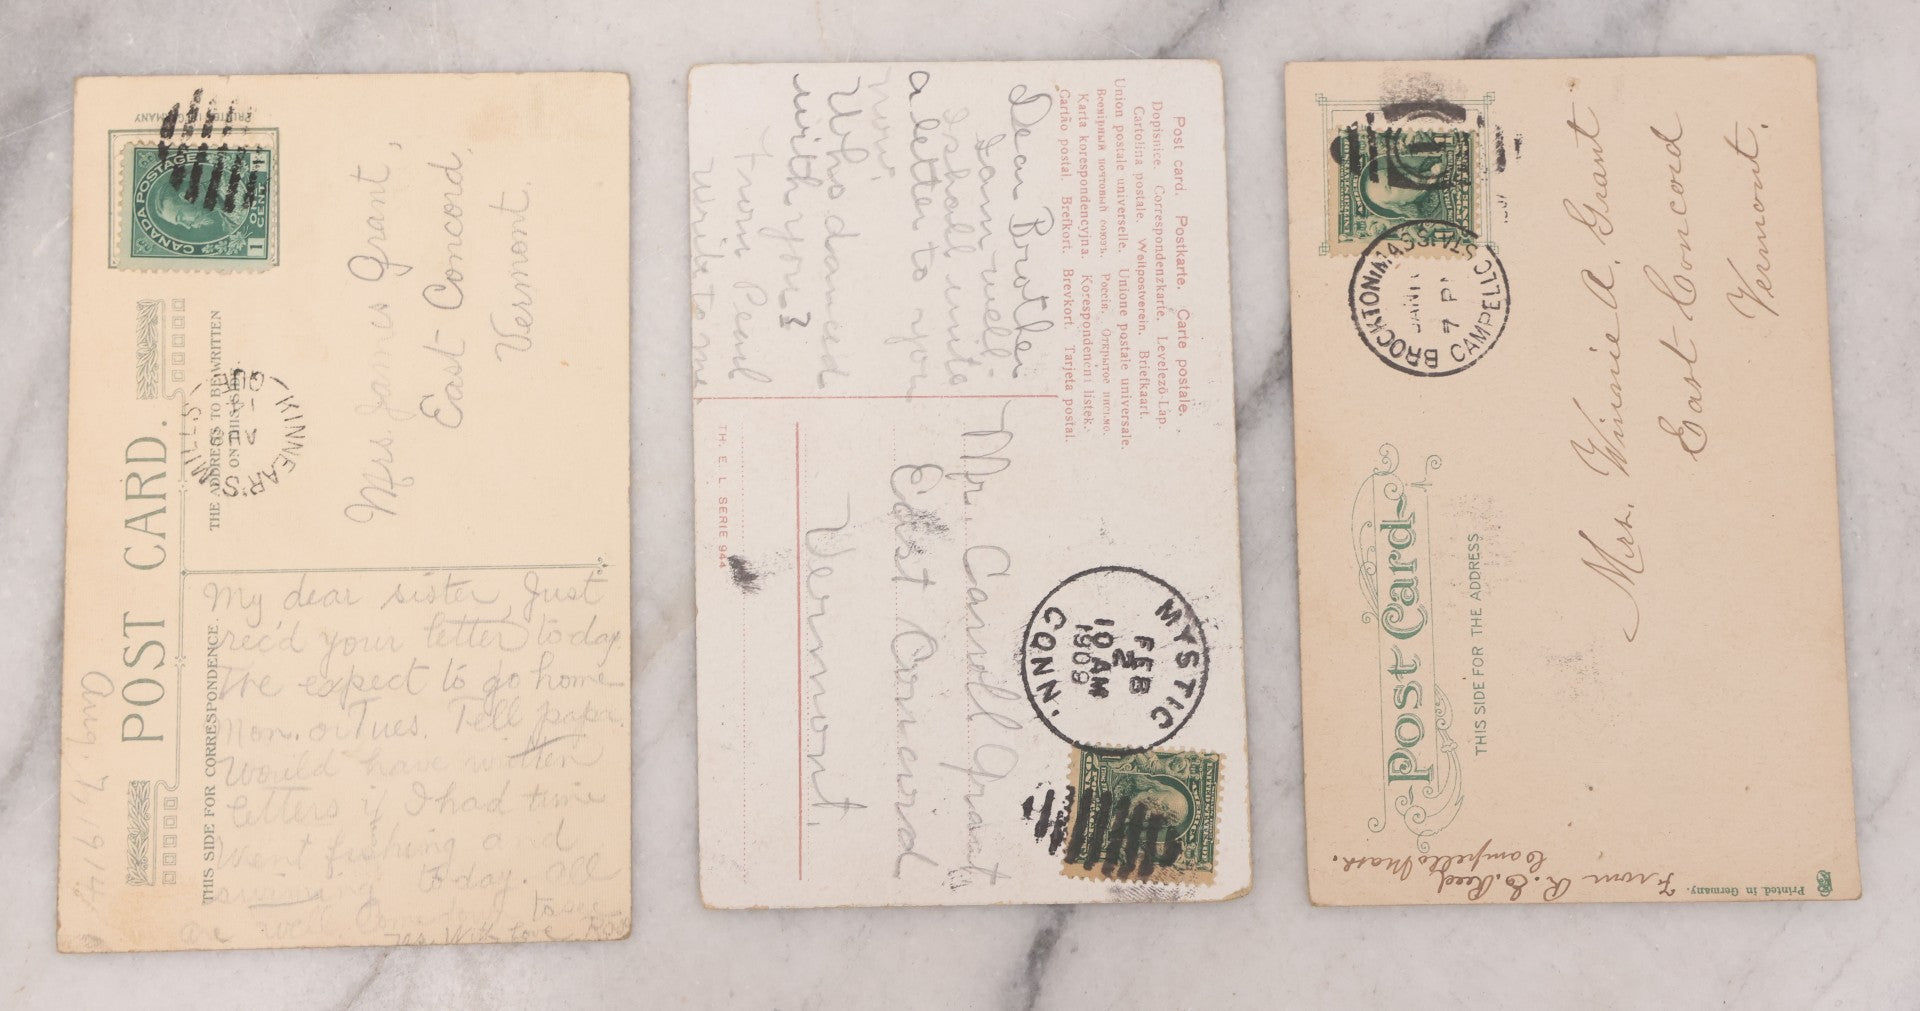 PRINTED IN GERMANY
CANADA POSTAGE
1 ONE CENT 1
KINNEAR'S MILLS
QUE
POST CARD.
THE ADDRESS TO BE WRITTEN
ON THIS SIDE.
THIS SIDE FOR CORRESPONDENCE.
Mrs. James Grant,
East Concord,
Vermont.
Aug. 7, 1914
My dear sister, Just
rec'd your letter today.
We expect to go home
Mon. or Tues. Tell papa
Would have written
letters if I had time
Went fishing and
today. All
are well.
Love
Post card. Postkarte. Carte postale.
Dopisnice. Correspondenzkarte. Levelező-Lap.
Cartolina postale. Weltpostverein. Briefkaart.
Union postale universelle. Unione postale universale.
Всемірный почтовый союзъ. Россія. Открытое письмо.
Karta korespondencyjna. Korespondenční lístek.
Cartão postal. Brefkort. Brevkort. Tarjeta postal.
Dear Brother
I am well.
I shall write
a letter to you
now.
Who danced
with you?
From Pearl
write to me
Mr. Carroll Grant
East Concord
Vermont.
TH. E. L. SERIE 944
MYSTIC
FEB
2
10 AM
1909
CONN.
UNITED STATES OF AMERICA
BROCKTON MASS.
CAMPELLO STA.
JAN
7 P
Post Card
THIS SIDE FOR THE ADDRESS
Mrs. Winnie A. Grant
East Concord
Vermont.
From R. E. Reed
Campello Mass.
Printed in Germany.